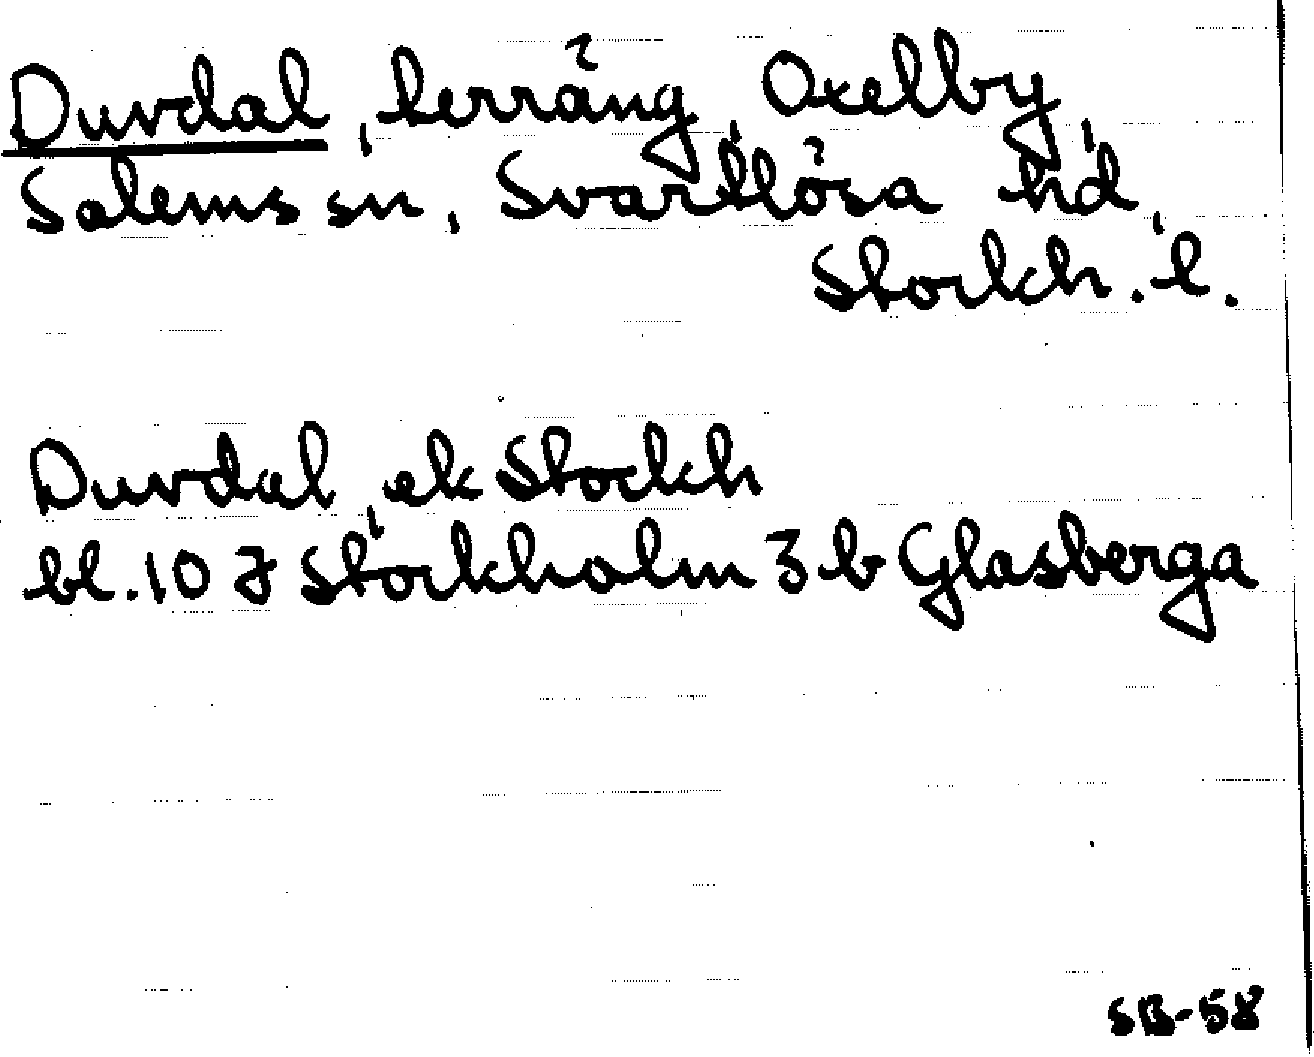 Duvdal, terräng, Oxelby,
Salems sn, Svartlösa hd,
Stockh. l.
Duvdal, ek Stockh
bl. 10 J Stockholm 3 b Glasberga
SB-58